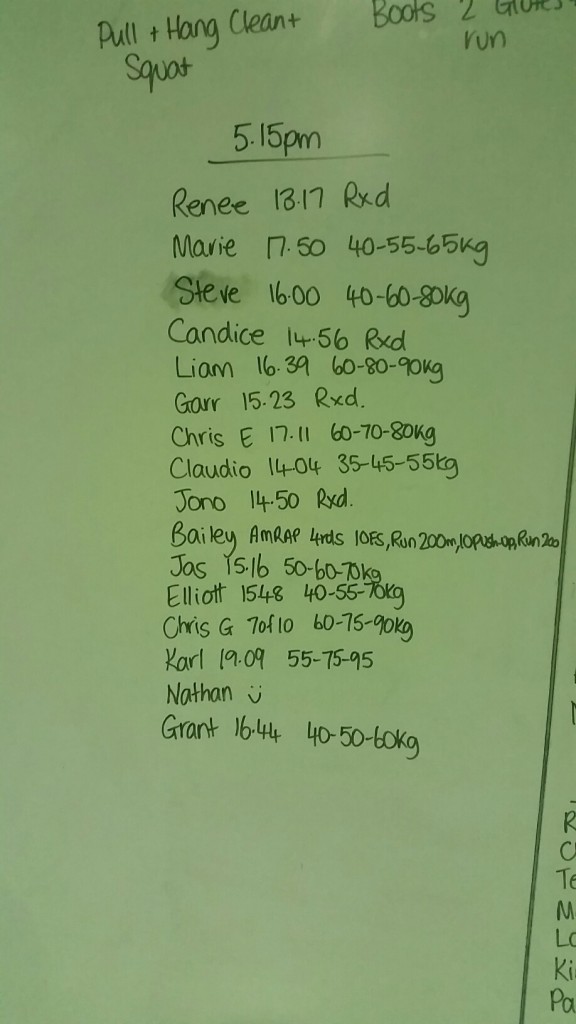 Pull + Hang Clean +
Squat
Boots 2 Glutes
run
5.15pm
Renee 13.17 Rxd
Marie 17.50 40-55-65kg
Steve 16.00 40-60-80kg
Candice 14.56 Rxd
Liam 16.39 60-80-90kg
Garr 15.23 Rxd.
Chris E 17.11 60-70-80kg
Claudio 14.04 35-45-55kg
Jono 14.50 Rxd.
Bailey AMRAP 4rds 10ES, Run 200m, 10 Push-up, Run 200
Jas 15.16 50-60-70kg
Elliott 15.48 40-55-70kg
Chris G 7 of 10 60-75-90kg
Karl 19.09 55-75-95
Nathan ü
Grant 16.44 40-50-60kg
R
C
Te
M
Lo
Ki
Pa